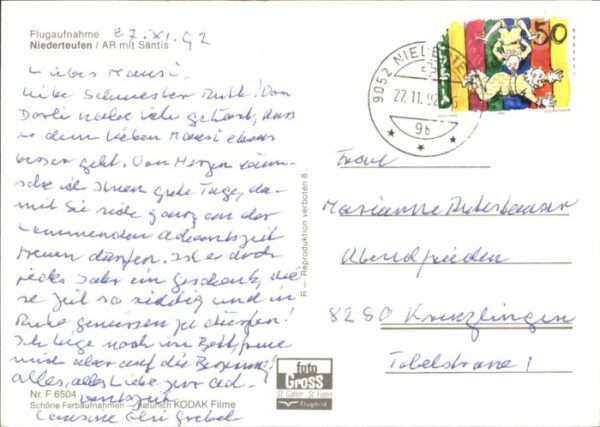 Flugaufnahme
27.XI.92
Niederteufen / AR mit Säntis
Liebes Mausi,
liebe Schwester Ruth! Von
Dorli habe ich gehört, dass
es dem lieben Mausi etwas
besser geht. Von Herzen wün-
sche ich Ihnen gute Tage, da-
mit Sie sich ganz an der
kommenden Adventszeit
freuen dürfen. Ist er doch
jedes Jahr ein Geschenk, die-
se Zeit so richtig und in
Ruhe geniessen zu dürfen!
Ich liege noch im Bett, freue
mich aber auf die Besserung!
alles, alles Liebe zur Ad-
ventszeit
Nr. F 6504
Schöne Farbaufnahmen — natürlich KODAK Filme
R — Reproduktion verboten 8
foto
GROSS
St. Gallen
Flugbild
9052 NIEDERTEUFEN
27.11.92
9b
50
Frau
Marianne
Abendfrieden
8280 Kreuzlingen
Tobelstrasse 1